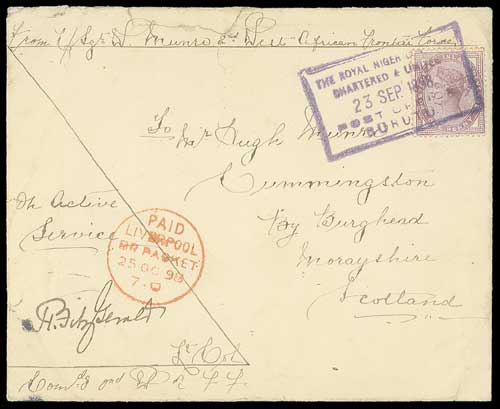 From C/Sgt D. Munro 2nd West African Frontier Force
THE ROYAL NIGER CO
CHARTERED & LIMITED
23 SEP. 1898
POST OFF
BURUTU
To
Mr Hugh Munro
Cummingston
By Burghead
Morayshire
Scotland
On Active
Service
PAID
LIVERPOOL
BR PACKET
25 OC 98
7. O
H. FitzGerald
Lt. Col
Comdg 2nd W A F F